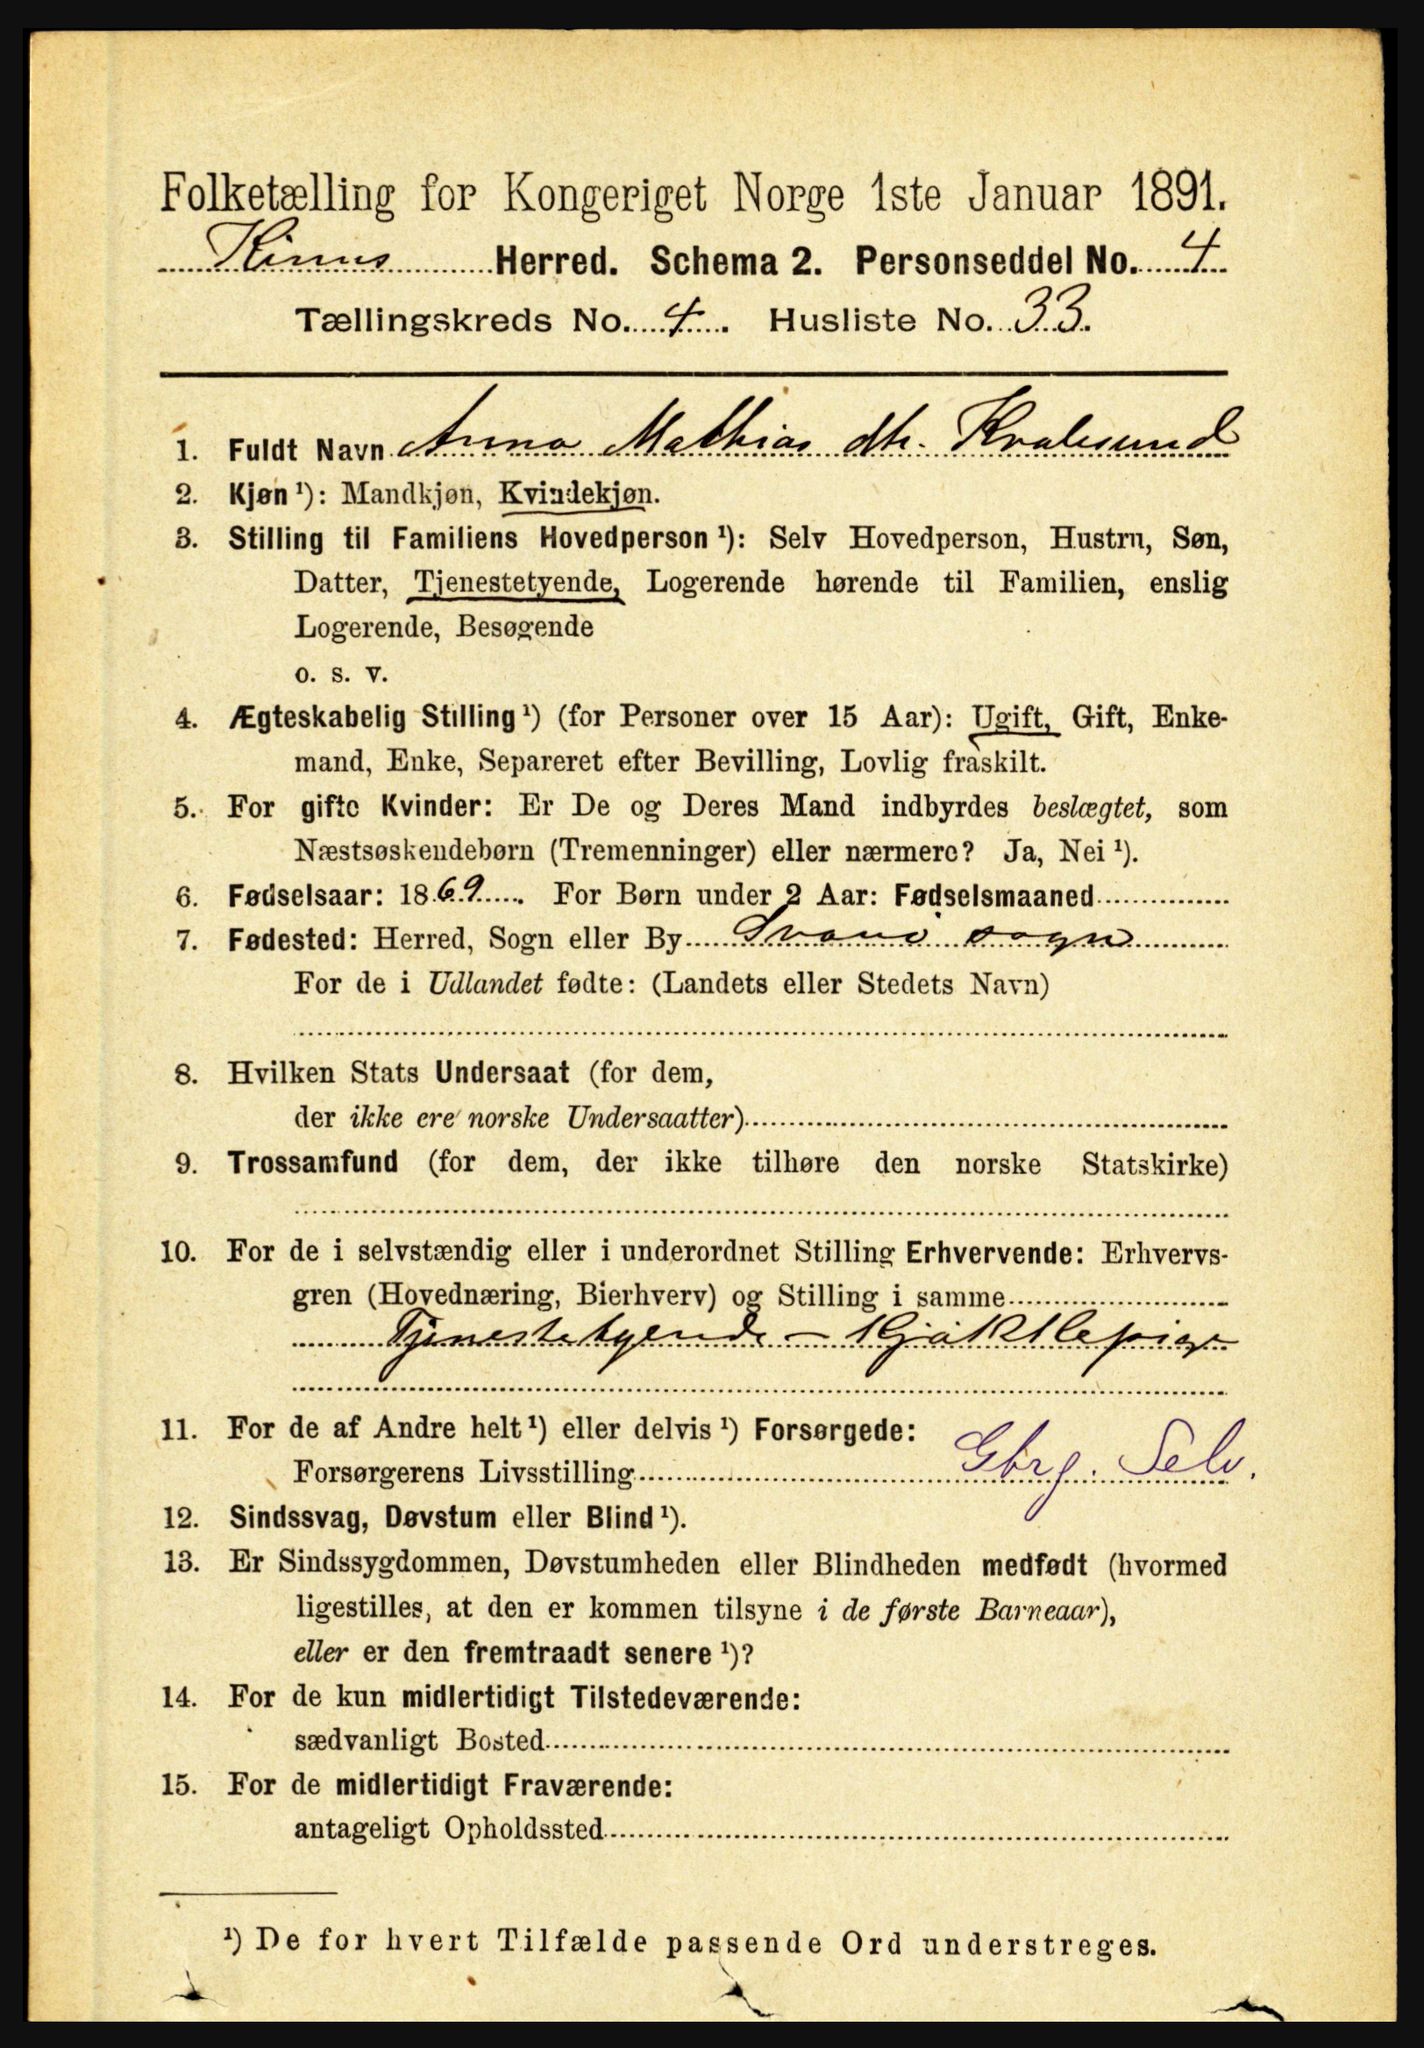 Folketælling for Kongeriget Norge 1ste Januar 1891.
Kinns Herred. Schema 2. Personseddel No. 4
Tællingskreds No. 4. Husliste No. 33.
1. Fuldt Navn Anna Mathias dtr. Kvalesund
2. Kjøn ¹): Mandkjøn, Kvindekjøn.
3. Stilling til Familiens Hovedperson ¹): Selv Hovedperson, Hustru, Søn,
Datter, Tjenestetyende, Logerende hørende til Familien, enslig
Logerende, Besøgende
o. s. v.
4. Ægteskabelig Stilling ¹) (for Personer over 15 Aar): Ugift, Gift, Enke-
mand, Enke, Separeret efter Bevilling, Lovlig fraskilt.
5. For gifte Kvinder: Er De og Deres Mand indbyrdes beslægtet, som
Næstsøskendebørn (Tremenninger) eller nærmere? Ja, Nei ¹).
6. Fødselsaar: 1869. For Børn under 2 Aar: Fødselsmaaned
7. Fødested: Herred, Sogn eller By Svanø sogn
For de i Udlandet fødte: (Landets eller Stedets Navn)
8. Hvilken Stats Undersaat (for dem,
der ikke ere norske Undersaatter)
9. Trossamfund (for dem, der ikke tilhøre den norske Statskirke)
10. For de i selvstændig eller i underordnet Stilling Erhvervende: Erhvervs-
gren (Hovednæring, Bierhverv) og Stilling i samme
Tjenestetyende –
11. For de af Andre helt ¹) eller delvis ¹) Forsørgede:
Forsørgerens Livsstilling Gbrg. Selv.
12. Sindssvag, Døvstum eller Blind ¹).
13. Er Sindssygdommen, Døvstumheden eller Blindheden medfødt (hvormed
ligestilles, at den er kommen tilsyne i de første Barneaar),
eller er den fremtraadt senere ¹)?
14. For de kun midlertidigt Tilstedeværende:
sædvanligt Bosted
15. For de midlertidigt Fraværende:
antageligt Opholdssted
¹) De for hvert Tilfælde passende Ord understreges.